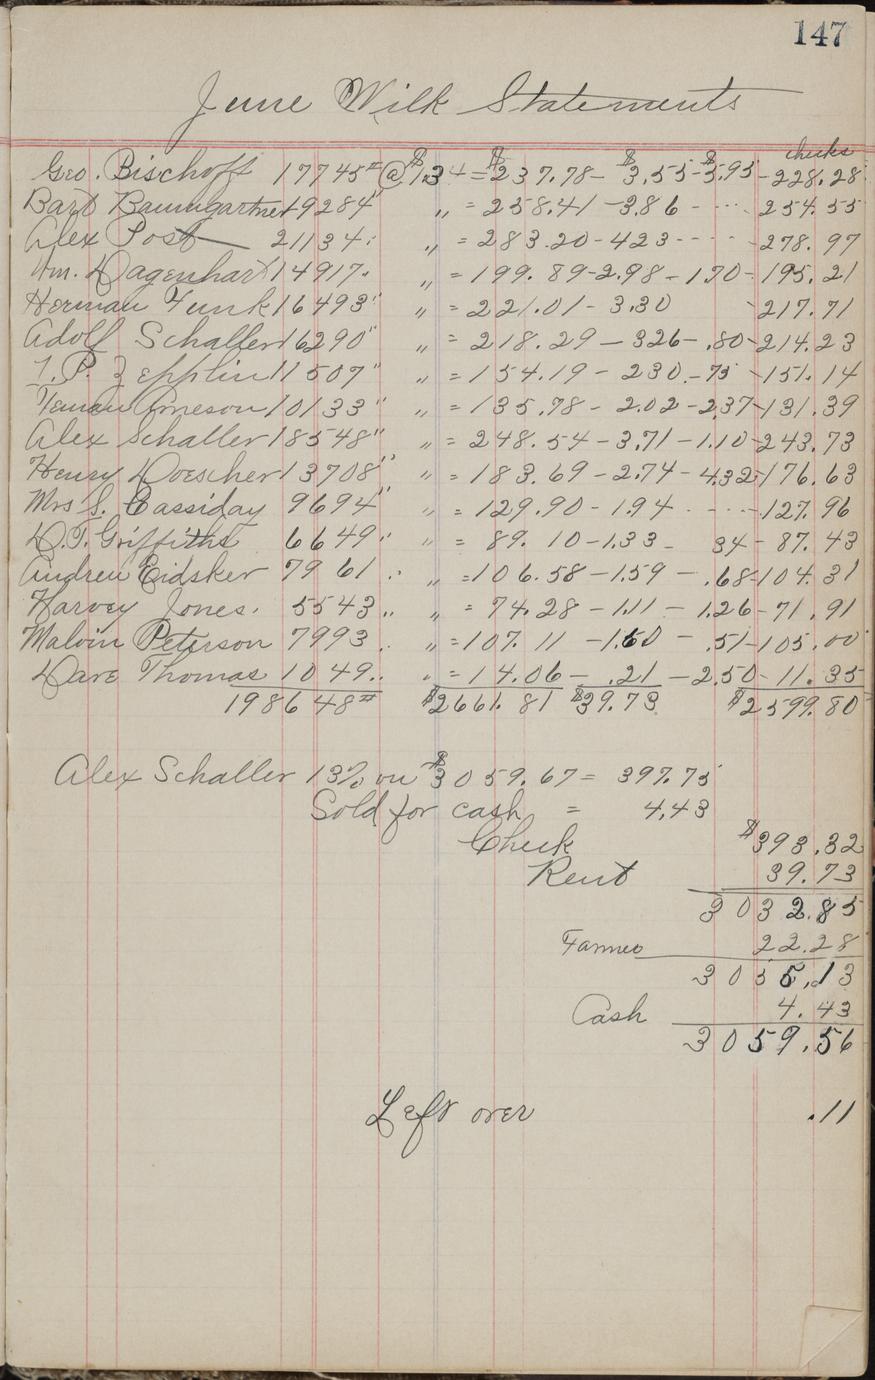 147
June Milk Statements
checks
Geo. Bischoff 17745# @ $1.34 = $237.78 - $3.55 - $5.95 - 228.28
Bart Baumgartner 19284" " = 258.41 - 3.86 - ... 254.55
Alex Post 21134" " = 283.20 - 423 - - - - 278.97
Wm. Dagenhart 14917" " = 199.89 - 2.98 - 1.70 - 195.21
Herman Funk 16493" " = 221.01 - 3.30 - 217.71
Adolf Schaller 16290" " = 218.29 - 326 - .80 - 214.23
T. P. Zepplin 11507" " = 154.19 - 230 - 75 - 151.14
Arneson 10133" " = 135.78 - 2.02 - 2.37 - 131.39
Alex Schaller 18548" " = 248.54 - 3.71 - 1.10 - 243.73
Henry Doescher 13708" " = 183.69 - 2.74 - 4.32 - 176.63
Mrs S. Cassiday 9694" " = 129.90 - 1.94 - - - - 127.96
D. T. Griffiths 6649" " = 89.10 - 1.33 - 34 - 87.43
Andrew Eidsker 7961 " " = 106.58 - 1.59 - .68 - 104.31
Harvey Jones. 5543" " = 74.28 - 1.11 - 1.26 - 71.91
Malvin Peterson 7993 " " = 107.11 - 1.60 - .51 - 105.00
Dave Thomas 1049" " = 14.06 - .21 - 2.50 - 11.35
198648# $2661.81 $39.73 $2599.80
Alex Schaller 13% on $3059.67 = 397.75
Sold for cash = 4.43
Check $393.32
Rent 39.73
3032.85
22.28
3055.13
Cash 4.43
3059.56
Left over .11